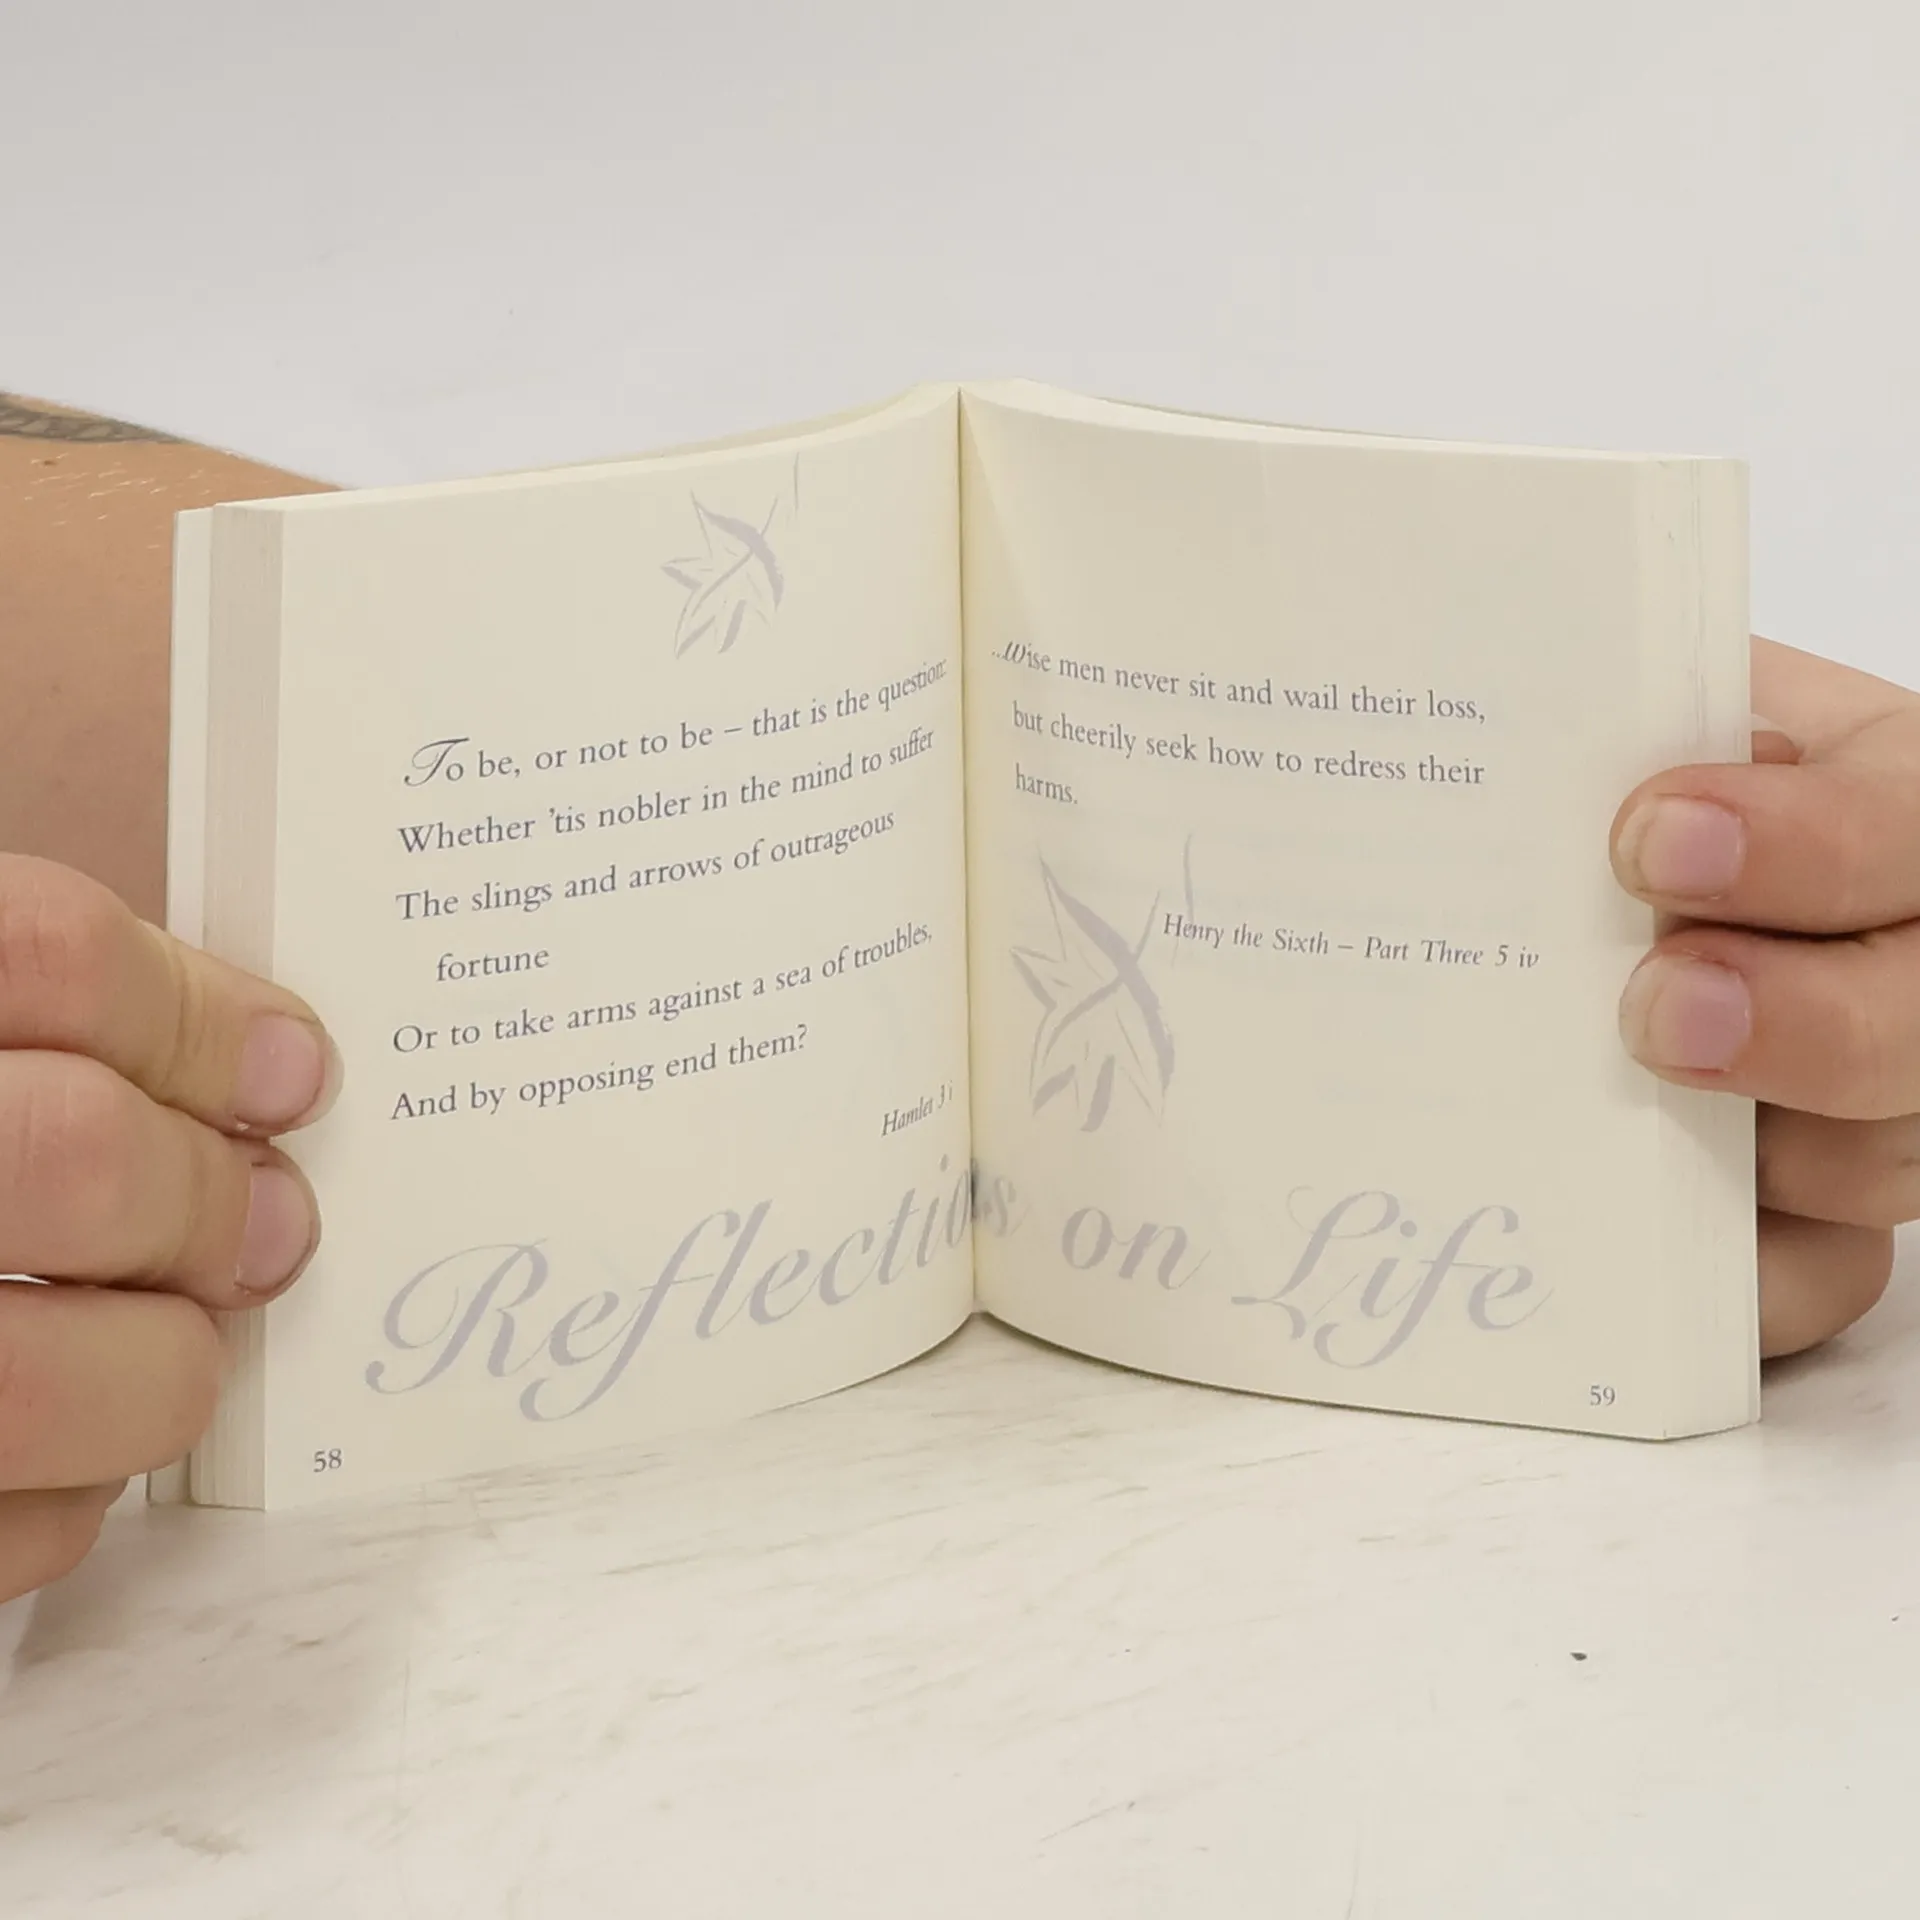 To be, or not to be – that is the question:
Whether 'tis nobler in the mind to suffer
The slings and arrows of outrageous
fortune
Or to take arms against a sea of troubles,
And by opposing end them?
Hamlet 3 i
...Wise men never sit and wail their loss,
but cheerily seek how to redress their
harms.
Henry the Sixth – Part Three 5 iv
Reflections on Life
58
59